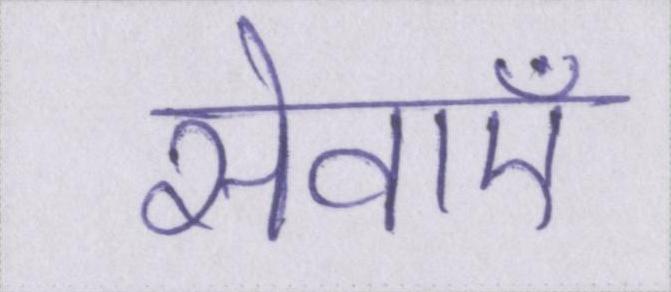 सेवाएँ